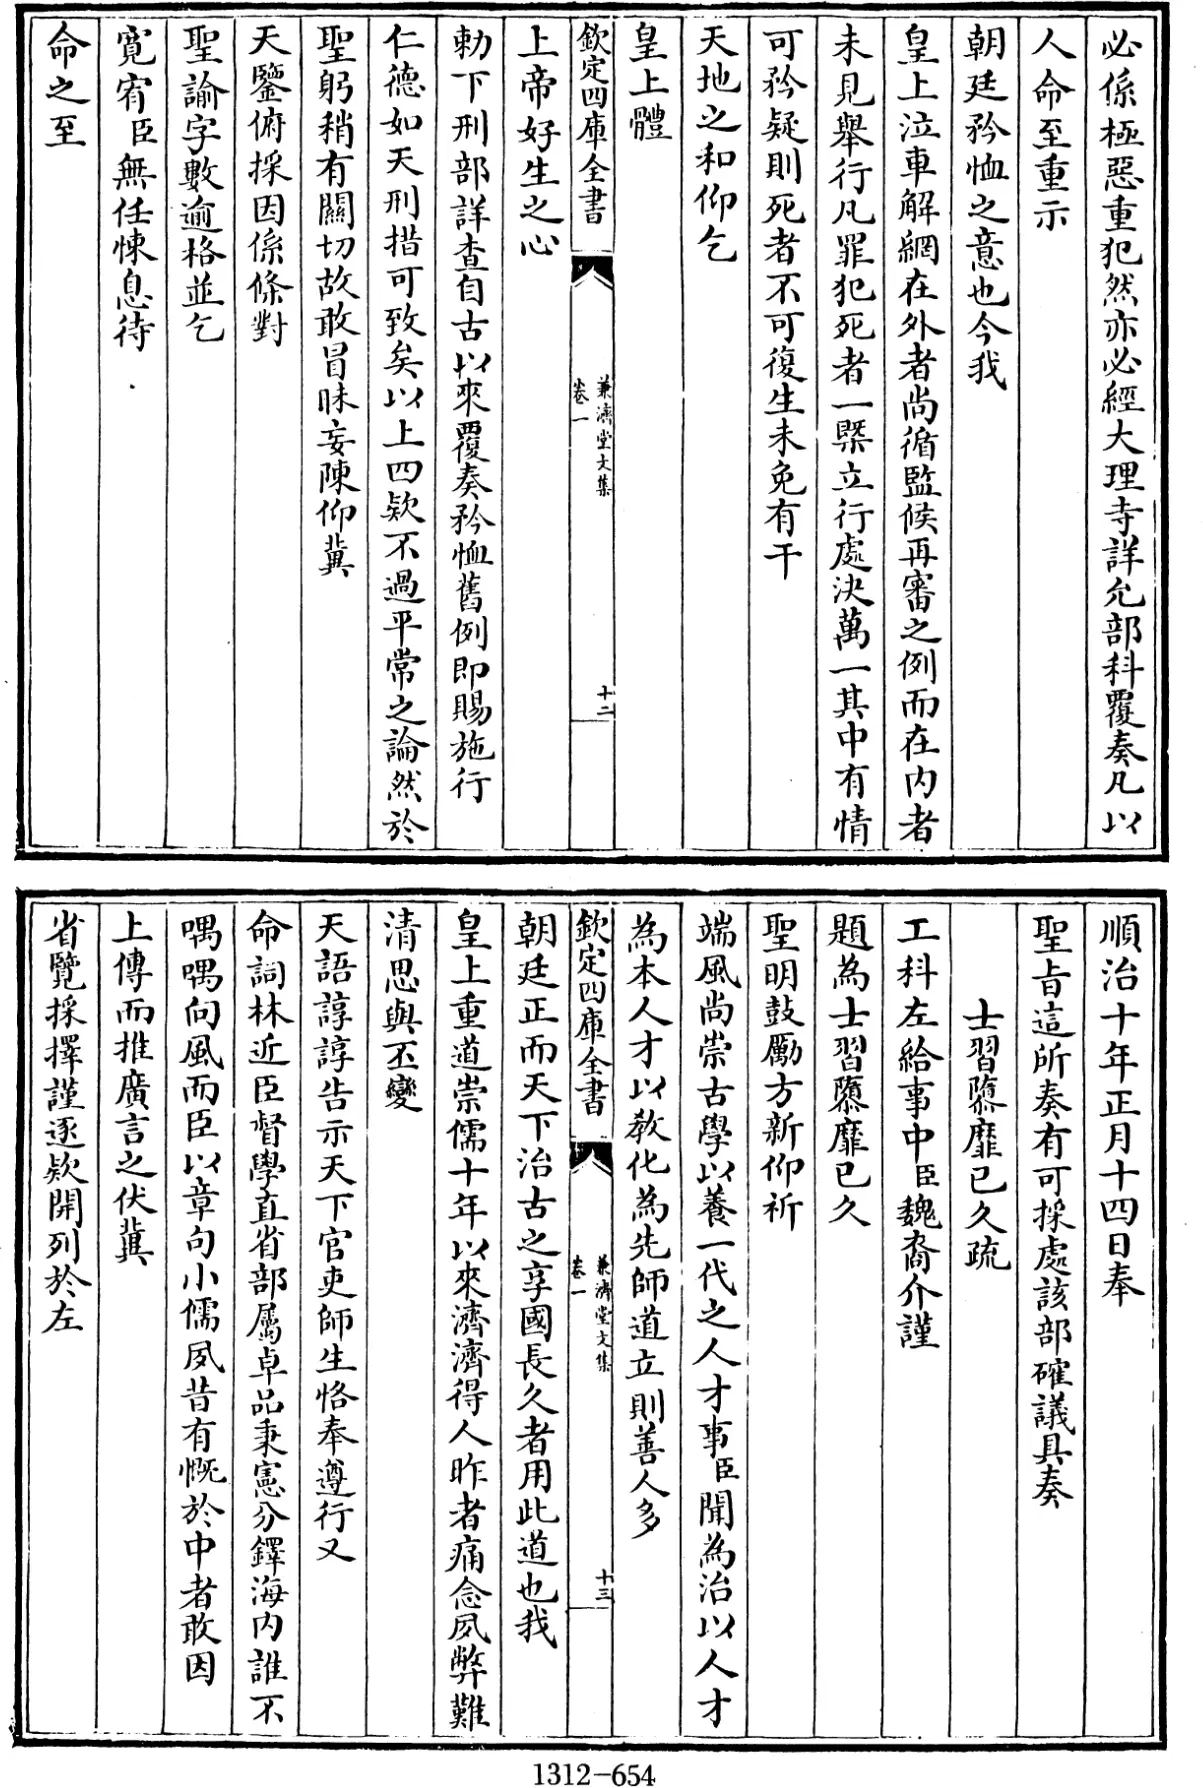 必係極惡重犯然亦必經大理寺詳允部科覆奏凡以
人命至重示
朝廷矜恤之意也今我
皇上泣車解網在外者尚循監候再審之例而在内者
未見舉行凡罪犯死者一槩立行處決萬一其中有情
可矜疑則死者不可復生未免有干
天地之和仰乞
皇上體
欽定四庫全書
兼濟堂文集
卷一
十二
上帝好生之心
勅下刑部詳查自古以來覆奏矜恤舊例即賜施行
仁德如天刑措可致矣以上四欵不過平常之論然於
聖躬稍有關切故敢冒昧妄陳仰冀
天鑒俯採因係條對
聖諭字數逾格並乞
寛宥臣無任悚息待
命之至
順治十年正月十四日奉
聖旨這所奏有可採處該部確議具奏
士習隳靡已久疏
工科左給事中臣魏裔介謹
題為士習隳靡已久
聖明鼓勵方新仰祈
端風尚崇古學以養一代之人才事臣聞為治以人才
為本人才以教化為先師道立則善人多
欽定四庫全書
兼濟堂文集
卷一
十三
朝廷正而天下治古之享國長久者用此道也我
皇上重道崇儒十年以來濟濟得人昨者痛念夙弊難
清思與丕變
天語諄諄告示天下官吏師生恪奉遵行又
命詞林近臣督學直省部屬卓品秉憲分鐸海内誰不
喁喁向風而臣以章句小儒夙昔有慨於中者敢因
上傳而推廣言之伏冀
省覽採擇謹逐欵開列於左
1312-654